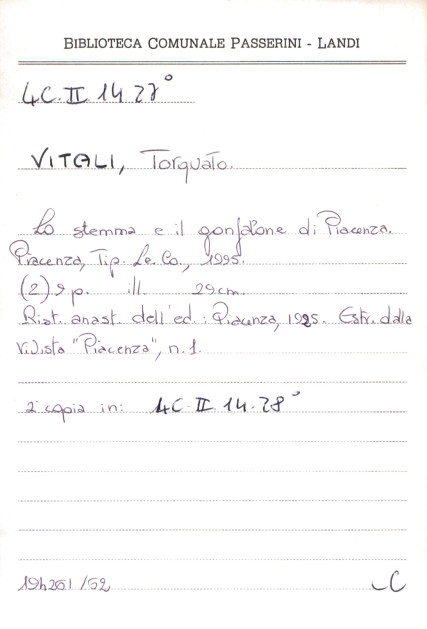 BIBLIOTECA COMUNALE PASSERINI - LANDI
4C. II 14 27°
VITALI, Torquato.
Lo stemma e il gonfalone di Piacenza.
Piacenza, Tip. Le. Co., 1995.
(2) 9 p. ill. 29 cm.
Rist. anast. dell'ed.: Piacenza, 1925. Estr. dalla
rivista "Piacenza", n. 1.
2ª copia in: 4C. II. 14. 28°
/62
C